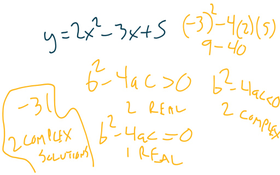 y = 2x² - 3x + 5
(-3)² - 4(2)(5)
9 - 40
b² - 4ac > 0
2 REAL
b² - 4ac = 0
1 REAL
b² - 4ac < 0
2 COMPLEX
-31
2 COMPLEX
SOLUTIONS